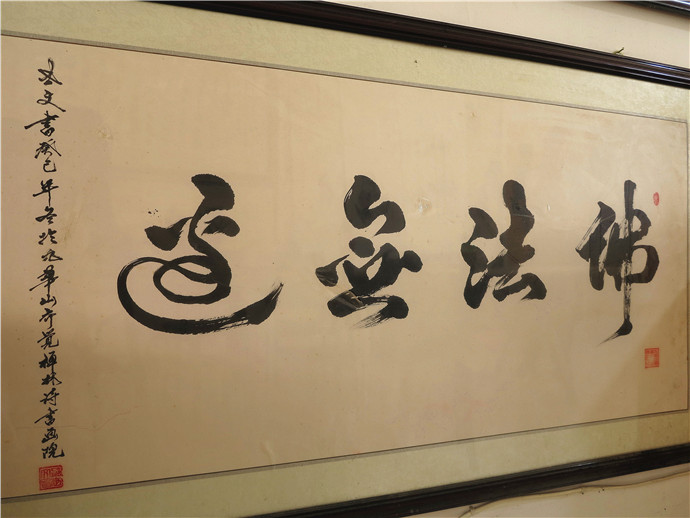 佛法無邊
文書癸巳年冬於九華山覺禪林詩書畫院